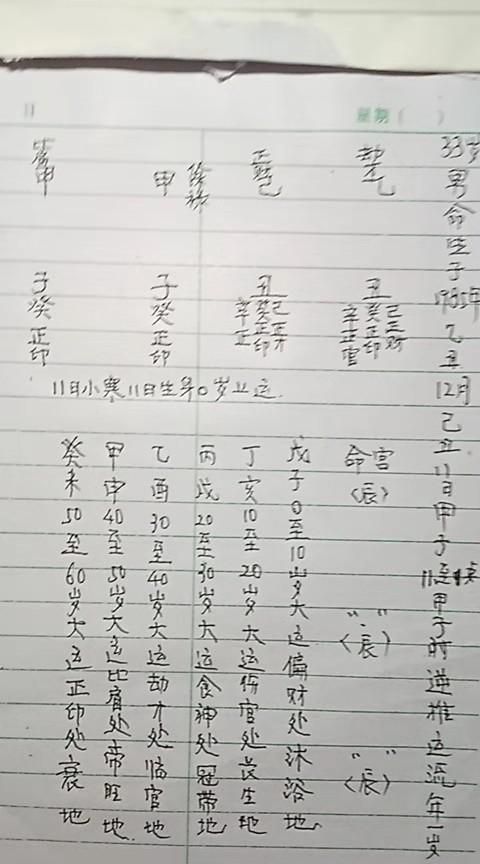 11
星期（ ）
33岁男命生于1985年乙丑12月己丑11日甲子甲子时逆推运流年一岁
劫才乙
正财己
甲
甲
丑
己正财
癸正印
辛正官
丑
己正才
癸正印
辛正
子
癸
正印
子
癸
正印
11日小寒11日生年0岁上运
命宫
〈辰〉
〃 〃
〈辰〉
〃 〃
〈辰〉
戊子0至10岁大运偏财处沐浴地
丁亥10至20岁大运伤官处长生地
丙戌20至30岁大运食神处冠带地
乙酉30至40岁大运劫才处临官地
甲申40至50岁大运比肩处帝旺地
癸未50至60岁大运正印处衰地